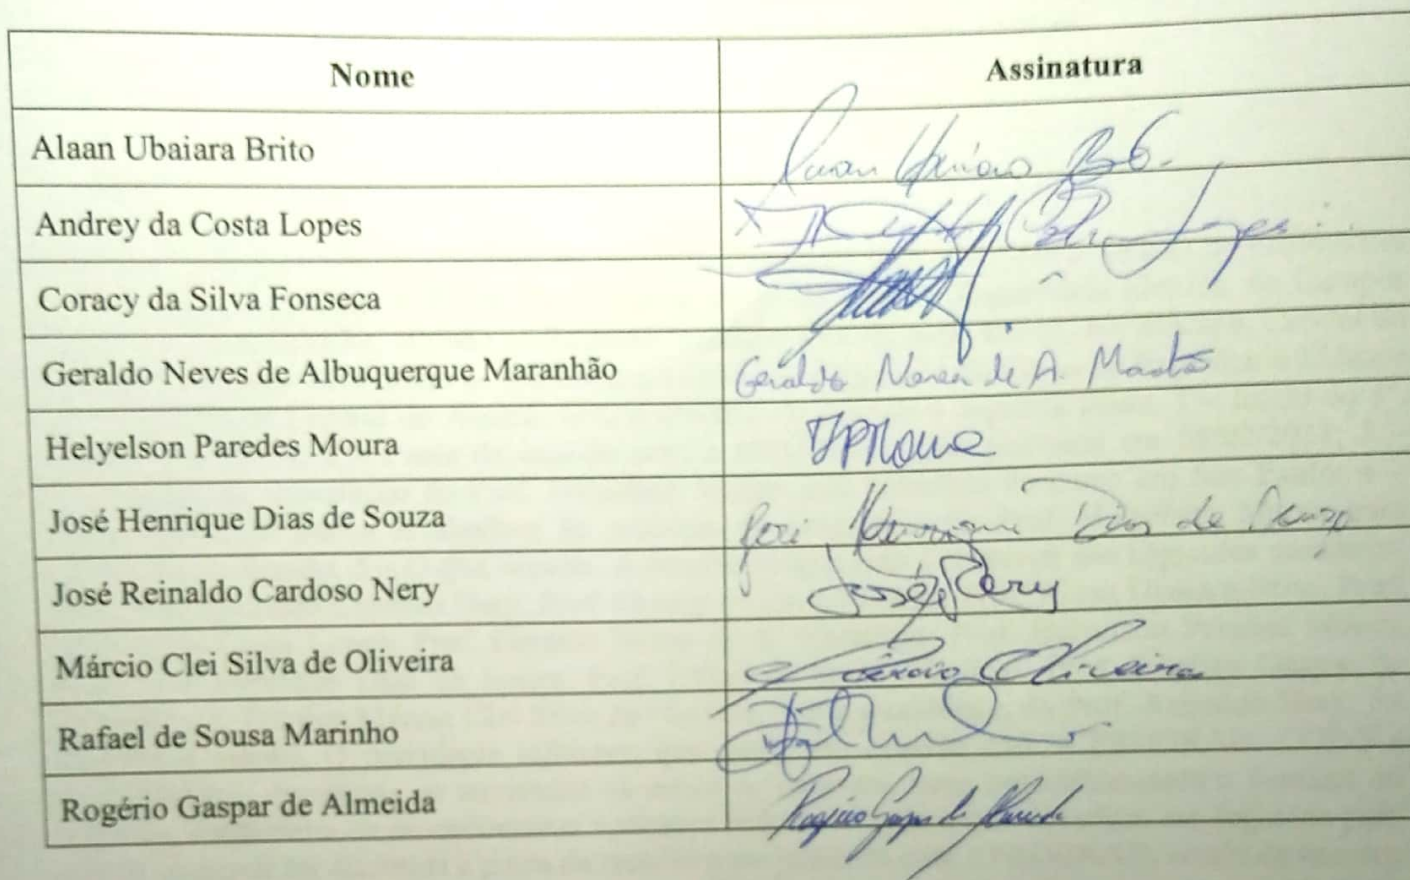 Nome Assinatura
Alaan Ubaiara Brito
Andrey da Costa Lopes
Coracy da Silva Fonseca
Geraldo Neves de Albuquerque Maranhão Geraldo Neves de A.
Helyelson Paredes Moura HPMoura
José Henrique Dias de Souza José Henrique Dias de Souza
José Reinaldo Cardoso Nery José Nery
Márcio Clei Silva de Oliveira Márcio Oliveira
Rafael de Sousa Marinho
Rogério Gaspar de Almeida Rogério Gaspar de Almeida